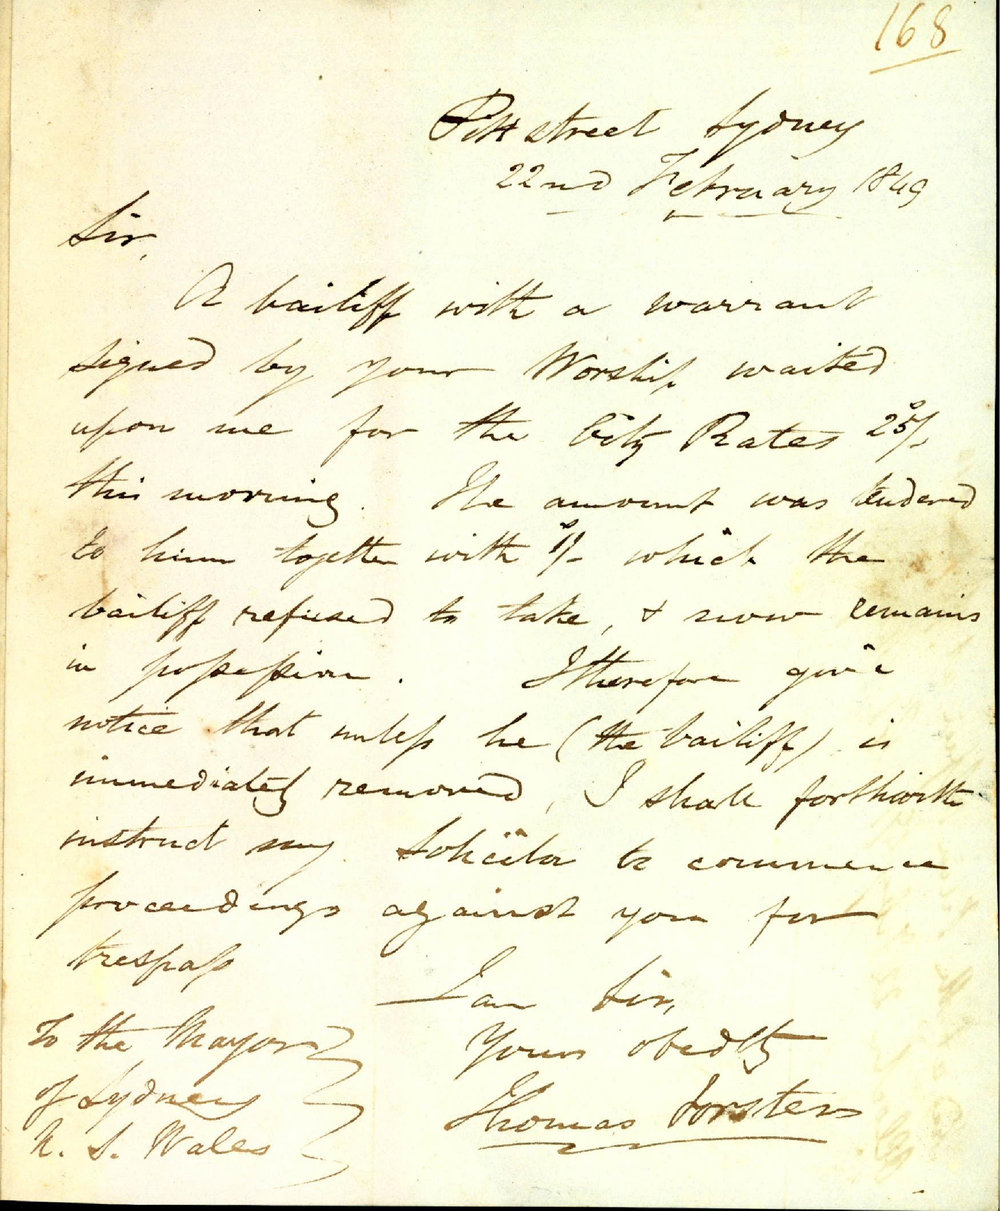 168
Pitt street Sydney
22nd February 1849
Sir,
A bailiff with a warrant
signed by your Worship waited
upon me for the City Rates 25/-
this morning. The amount was tendered
to him together with 1/- which the
bailiff refused to take, & now remains
in possession. I therefore give
notice that unless he (the bailiff) is
immediately removed, I shall forthwith
instruct my Solicitor to commence
proceedings against you for
trespass
I am Sir,
Yours obedtly
Thomas Forster
To the Mayor
of Sydney
N. S. Wales